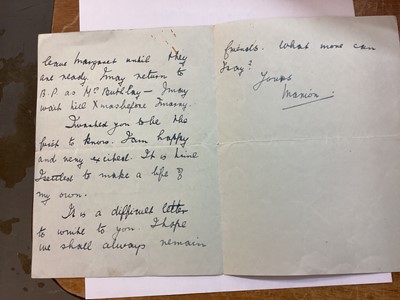 leave Margaret until they
are ready. I may return to
B.P. as Mc Buthlay — I may
wait till Xmas before I marry.
I wanted you to be the
first to know. I am happy
and very excited. It is time
I settled to make a life of
my own.
It is a difficult letter
to write to you. I hope
we shall always remain
friends. What more can
I say?
Yours
Marion.